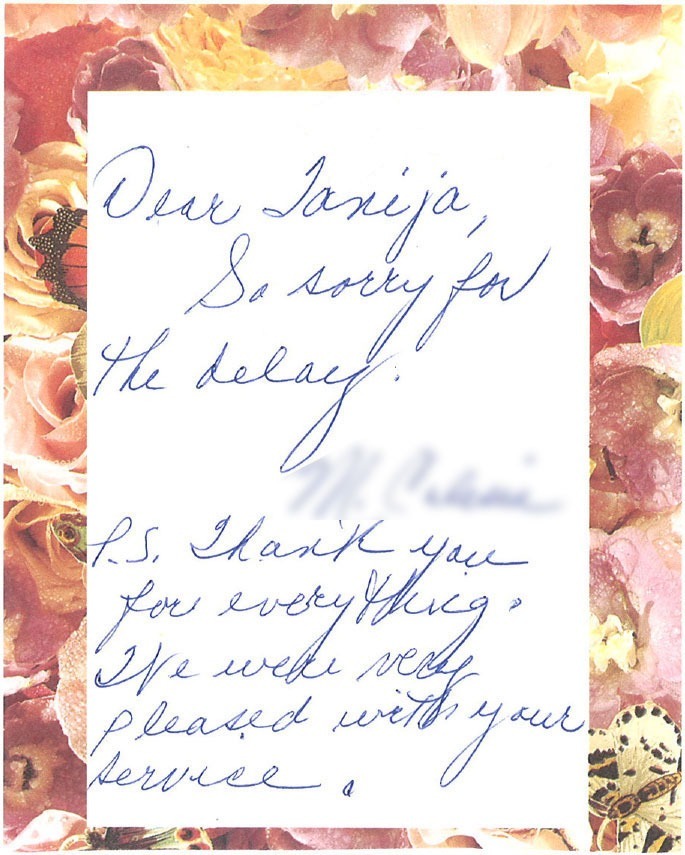 Dear Tanija,
So sorry for
the delay.
P.S. Thank you
for everything.
We were very
pleased with your
service.